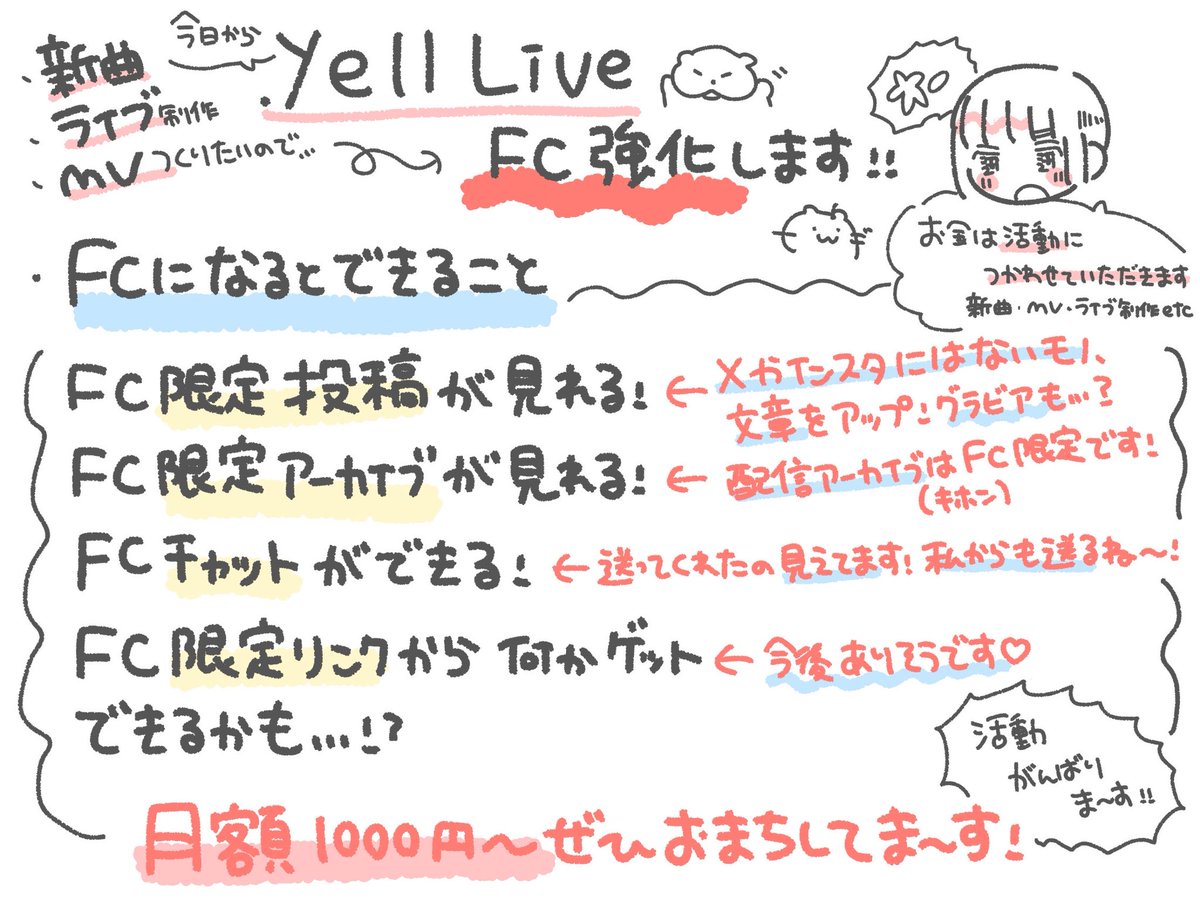 ・新曲
・ライブ制作
・MVつくりたいので…
今日から
・Yell Live
FC強化します!!
お金は活動に
つかわせていただきます
新曲・MV・ライブ制作etc
・FCになるとできること
FC限定投稿が見れる!
←Xやインスタにはないモノ、
文章をアップ!グラビアも…?
FC限定アーカイブが見れる!
←配信アーカイブはFC限定です!
(キホン)
FCチャットができる!
←送ってくれたの見えてます!私からも送るね〜!
FC限定リンクから何かゲット
できるかも…!?
←今後ありそうです♡
活動
がんばり
ま〜す!!
月額1000円〜ぜひおまちしてま〜す!